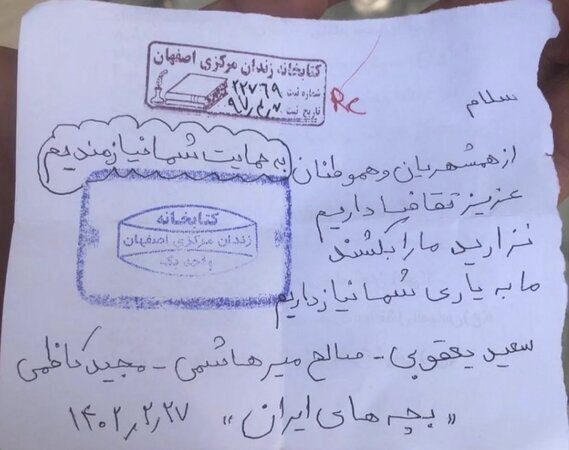 کتابخانه زندان مرکزی اصفهان
شماره ثبت ۲۲۷۶۹
تاریخ ثبت ۹۷/۲/۷
RC
سلام
از همشهریان و هموطنان به حمایت شما نیازمندیم
عزیز تقاضا داریم
نزارید ما را بکشند
ما به یاری شما نیاز داریم
کتابخانه
زندان مرکزی اصفهان
سعید یعقوبی - صالح میرهاشمی - مجید کاظمی
«بچه های ایران» ۱۴۰۲/۲/۲۷